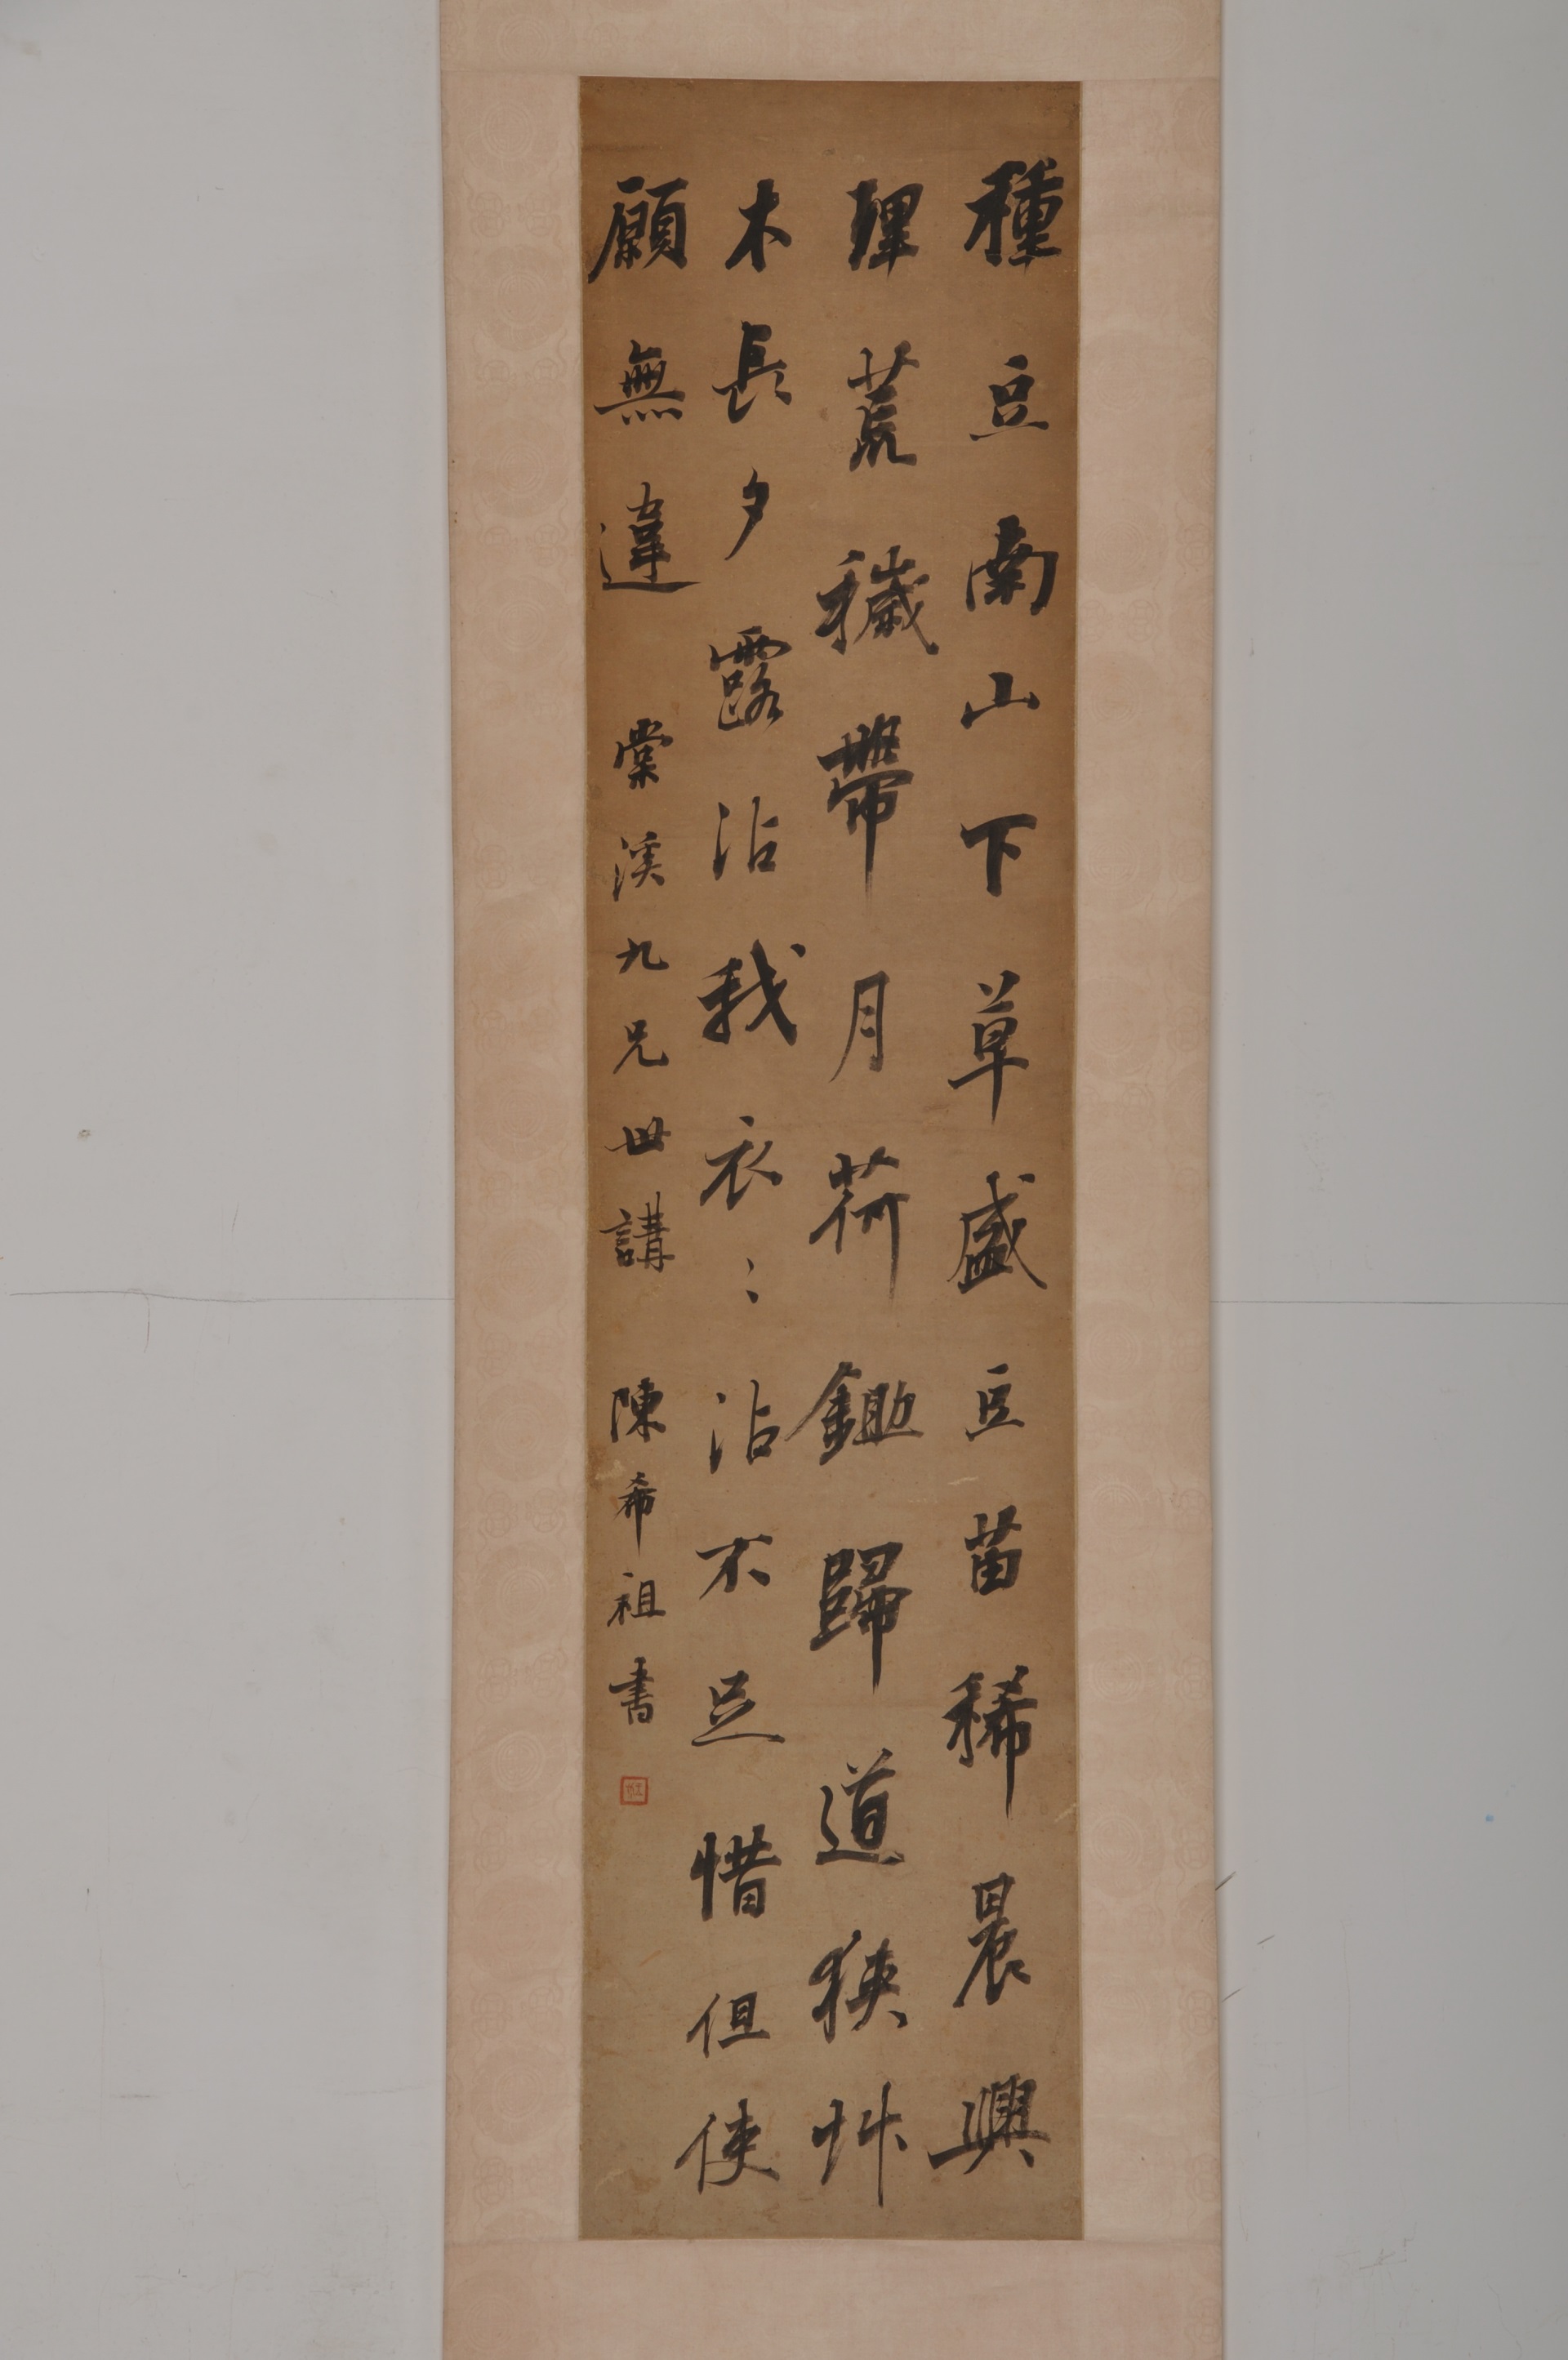 種豆南山下草盛豆苗稀晨興
理荒穢帶月荷鋤歸道狹艸
木長夕露沾我衣〻沾不足惜但使
願無違 棠溪九兄世講 陳希祖書